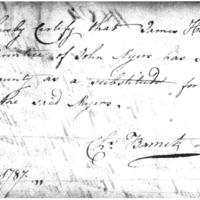 hereby Certify that James H
of John Myers has s
as a substitute for
the said Myers.
Chs. Barnett
1787.